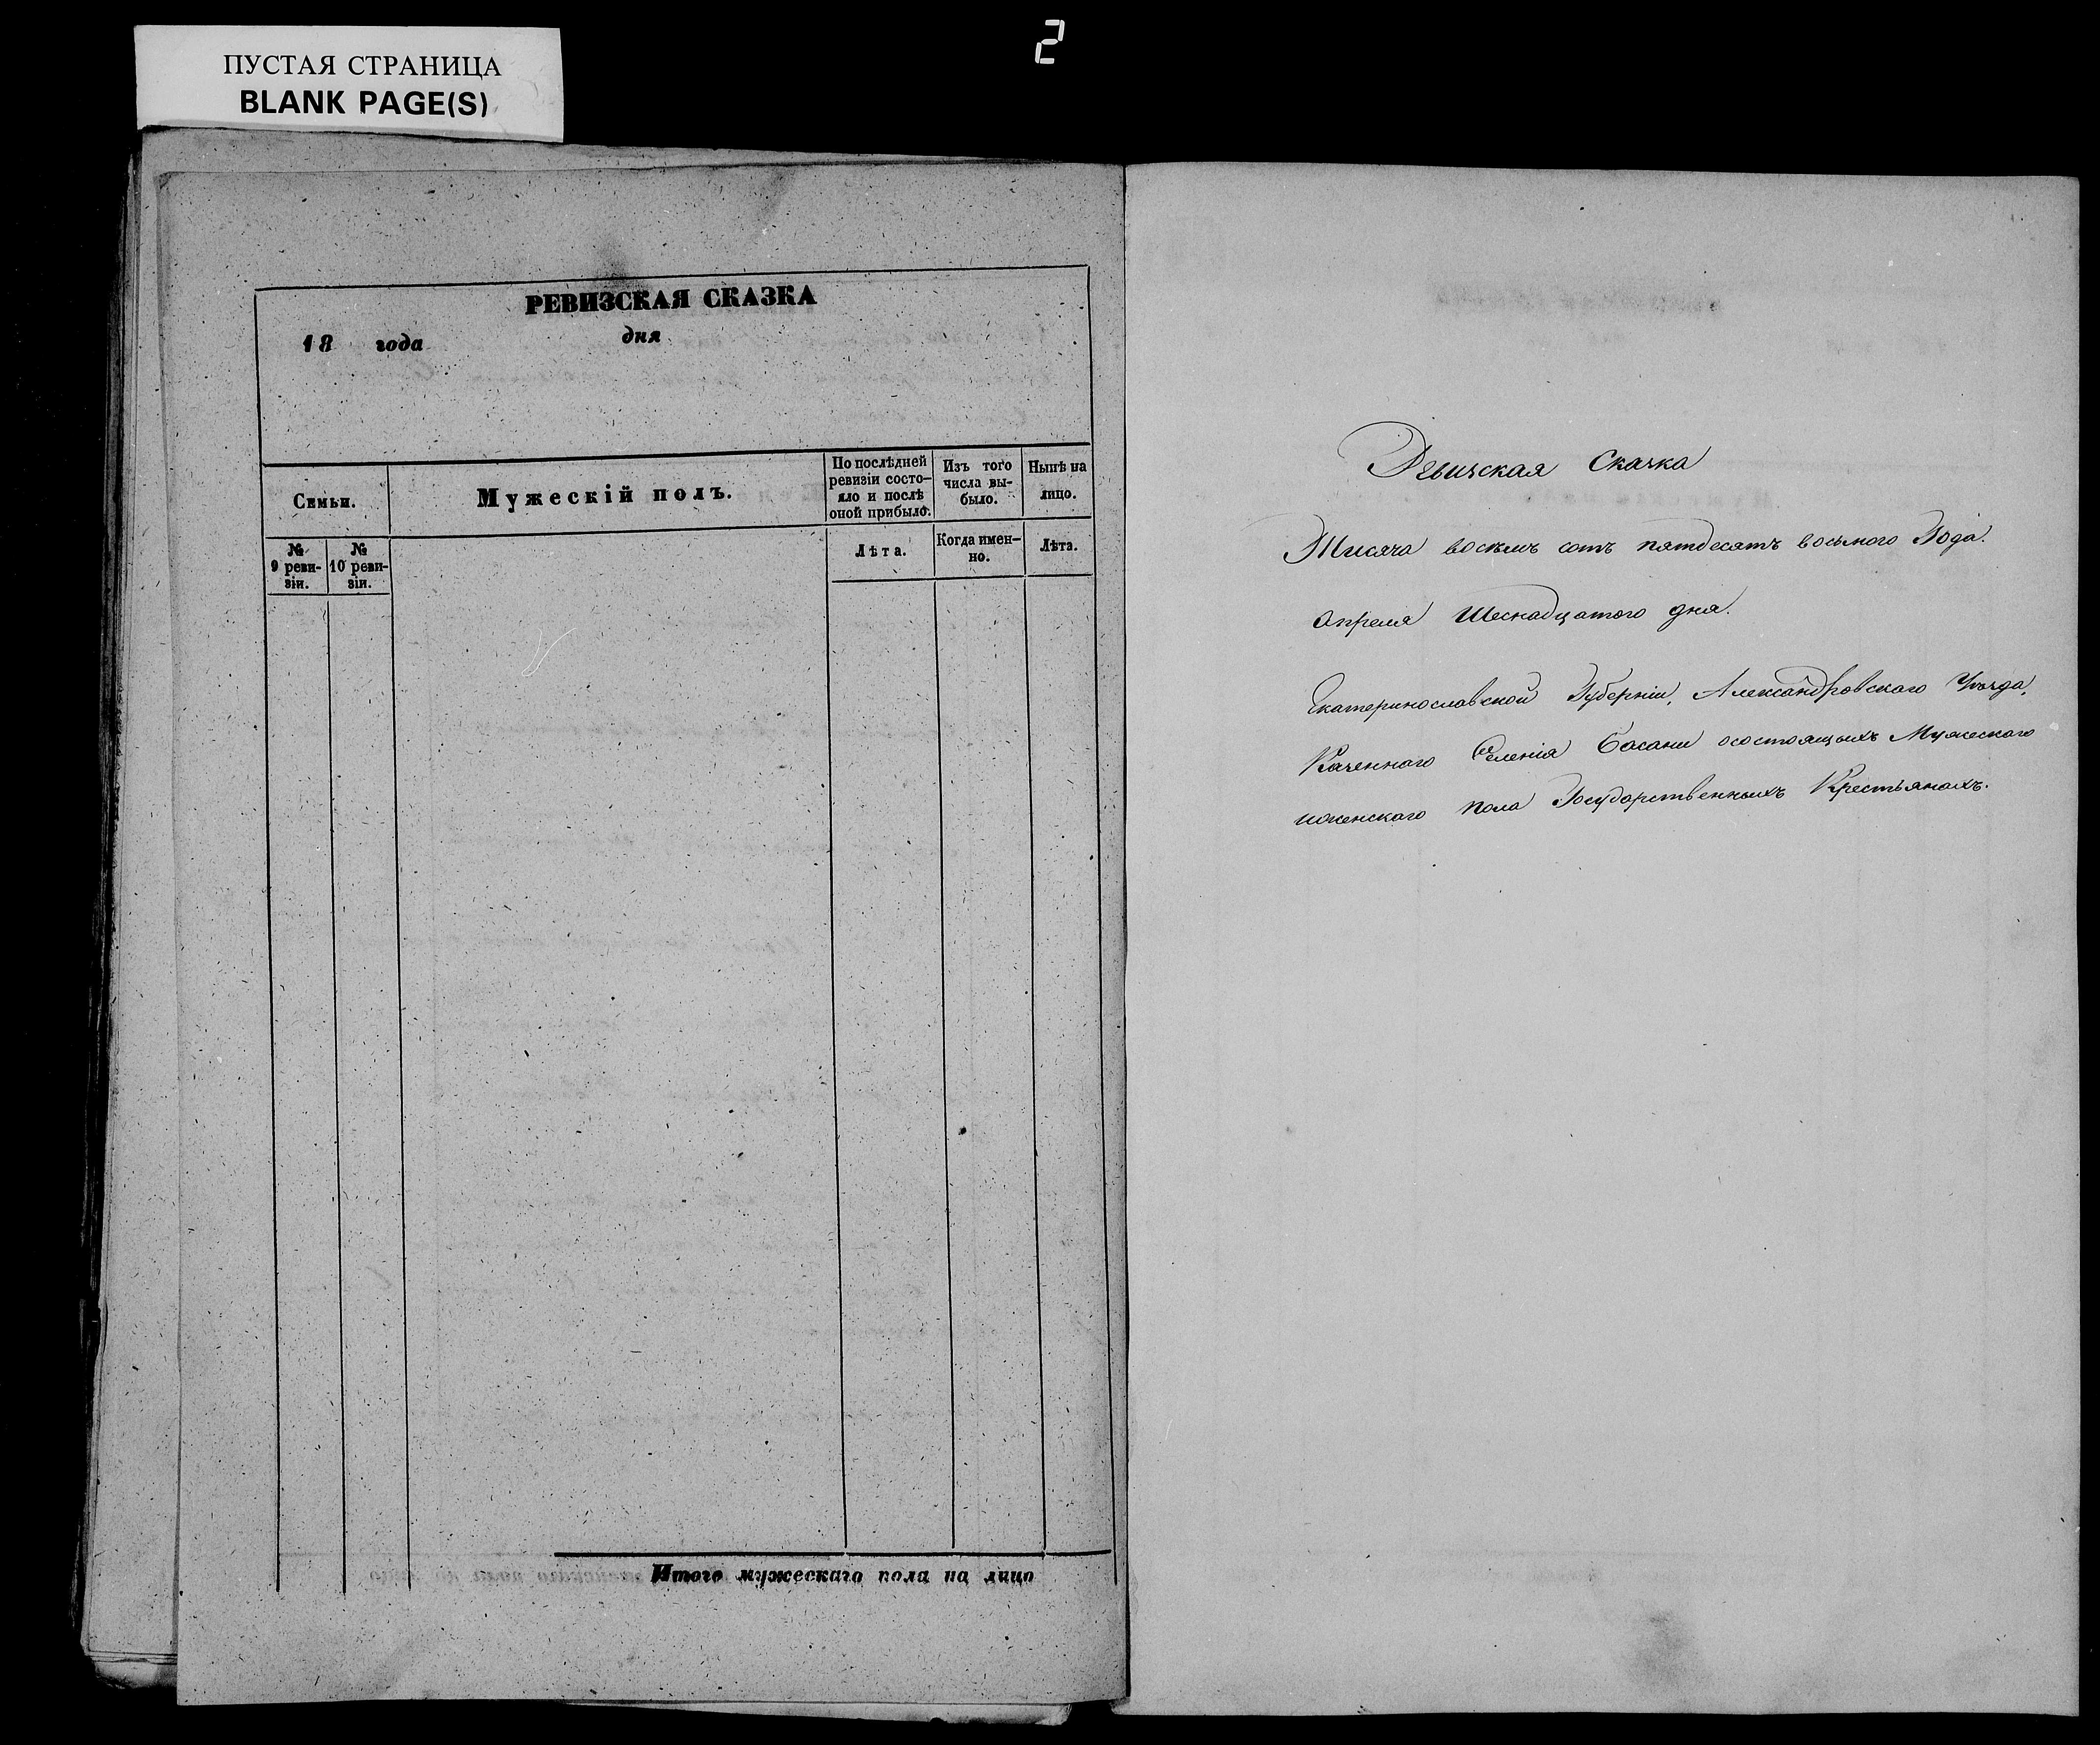 2
ПУСТАЯ СТРАНИЦА
BLANK PAGE(S)
РЕВИЗСКАЯ СКАЗКА
18 года дня
Семьи.
Мужескій полъ.
По послѣдней ревизіи состо-
яло и послѣ оной прибыло.
Изъ того числа вы-
было.
Нынѣ на лицо.
№ 9 реви-
зіи.
№ 10 реви-
зіи.
Лѣта.
Когда имен-
но.
Лѣта.
Итого мужескаго пола на лицо
Ревизская Сказка
Тисяча восемь сотъ пятдесятъ восьмого Года.
Апреля Шеснадцатого дня.
Екатеринославской Губерніи, Александровского Уезда,
Казенного Селенія Басани осостоящыхъ Мужеского
иженского пола Государственныхъ Крестьянахъ.